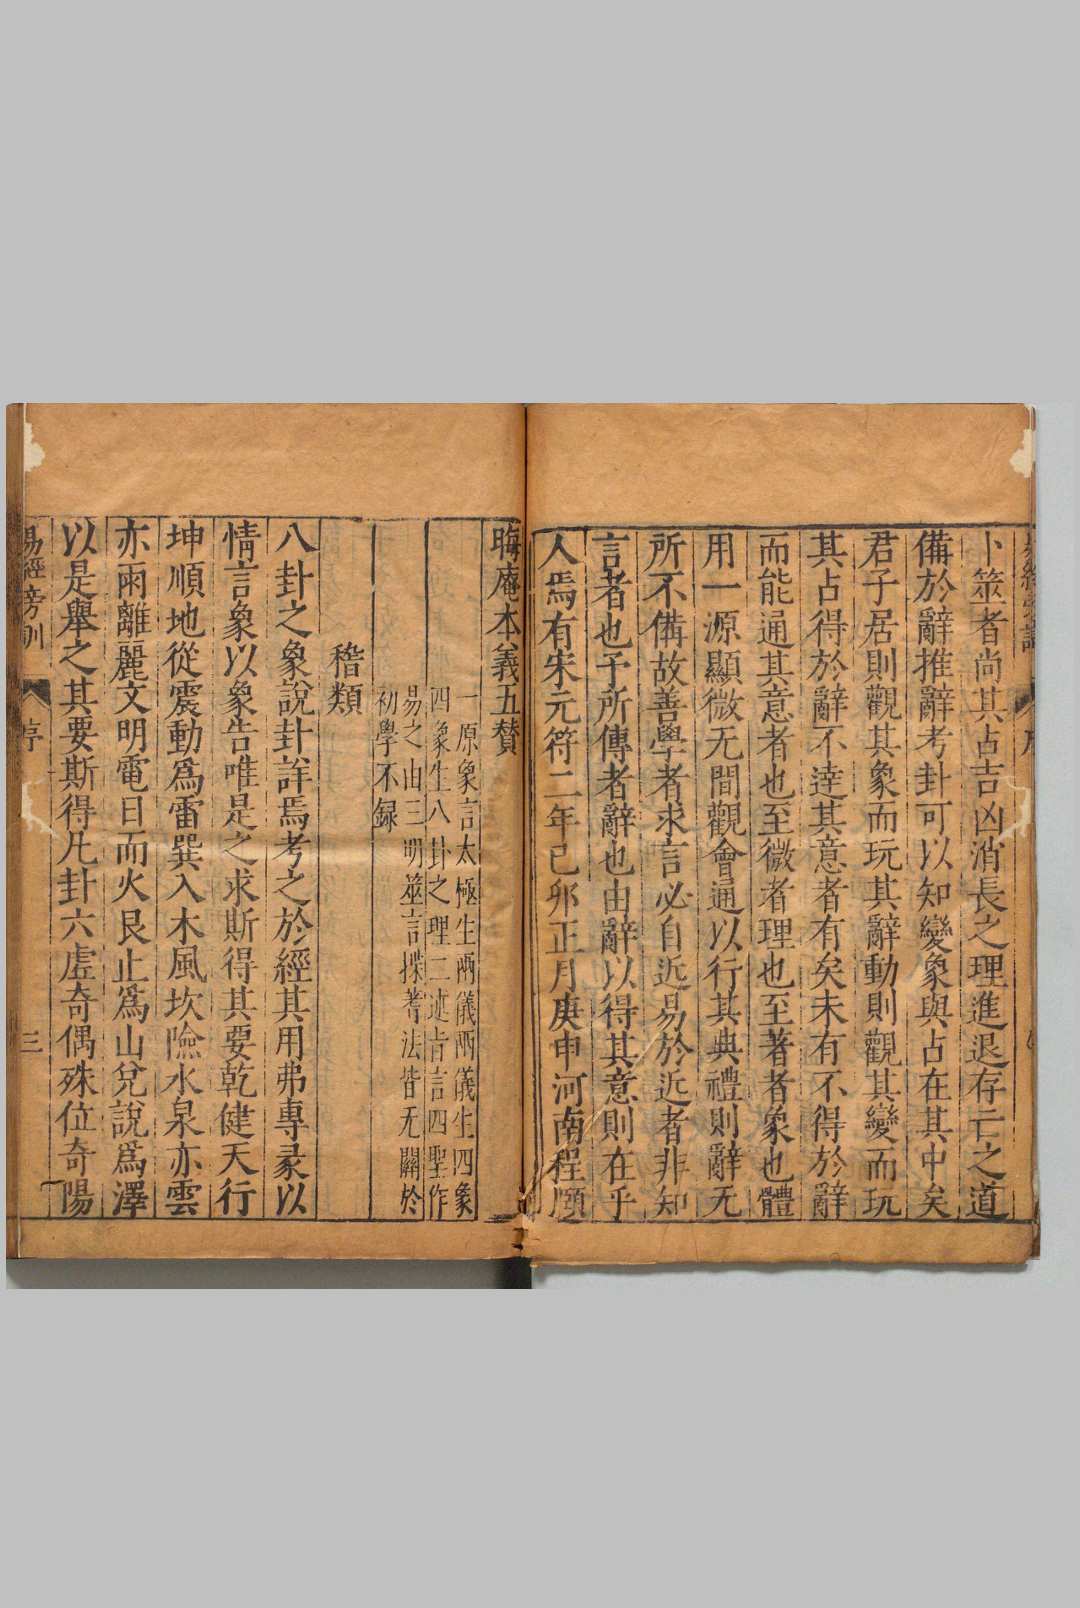 卜筮者尚其占吉凶消長之理進退存亡之道
備於辭推辭考卦可以知變象與占在其中矣
君子居則觀其象而玩其辭動則觀其變而玩
其占得於辭不逹其意者有矣未有不得於辭
而能通其意者也至微者理也至著者象也體
用一源顯微无間觀會通以行其典禮則辭无
所不備故善學者求言必自近易於近者非知
言者也予所傳者辭也由辭以得其意則在乎
人焉有宋元符二年己卯正月庚申河南程頤
晦庵本義五賛
一原象言太極生兩儀兩儀生四象
四象生八卦之理二述旨言四聖作
易之由三明筮言揲蓍法皆无關於
初學不録
稽類
八卦之象說卦詳焉考之於經其用弗專彖以
情言象以象告唯是之求斯得其要乾健天行
坤順地從震動爲雷巽入木風坎險水泉亦雲
亦雨離麗文明電日而火艮止爲山兌說爲澤
以是舉之其要斯得凡卦六虛竒偶殊位竒陽
易經旁訓 序 三